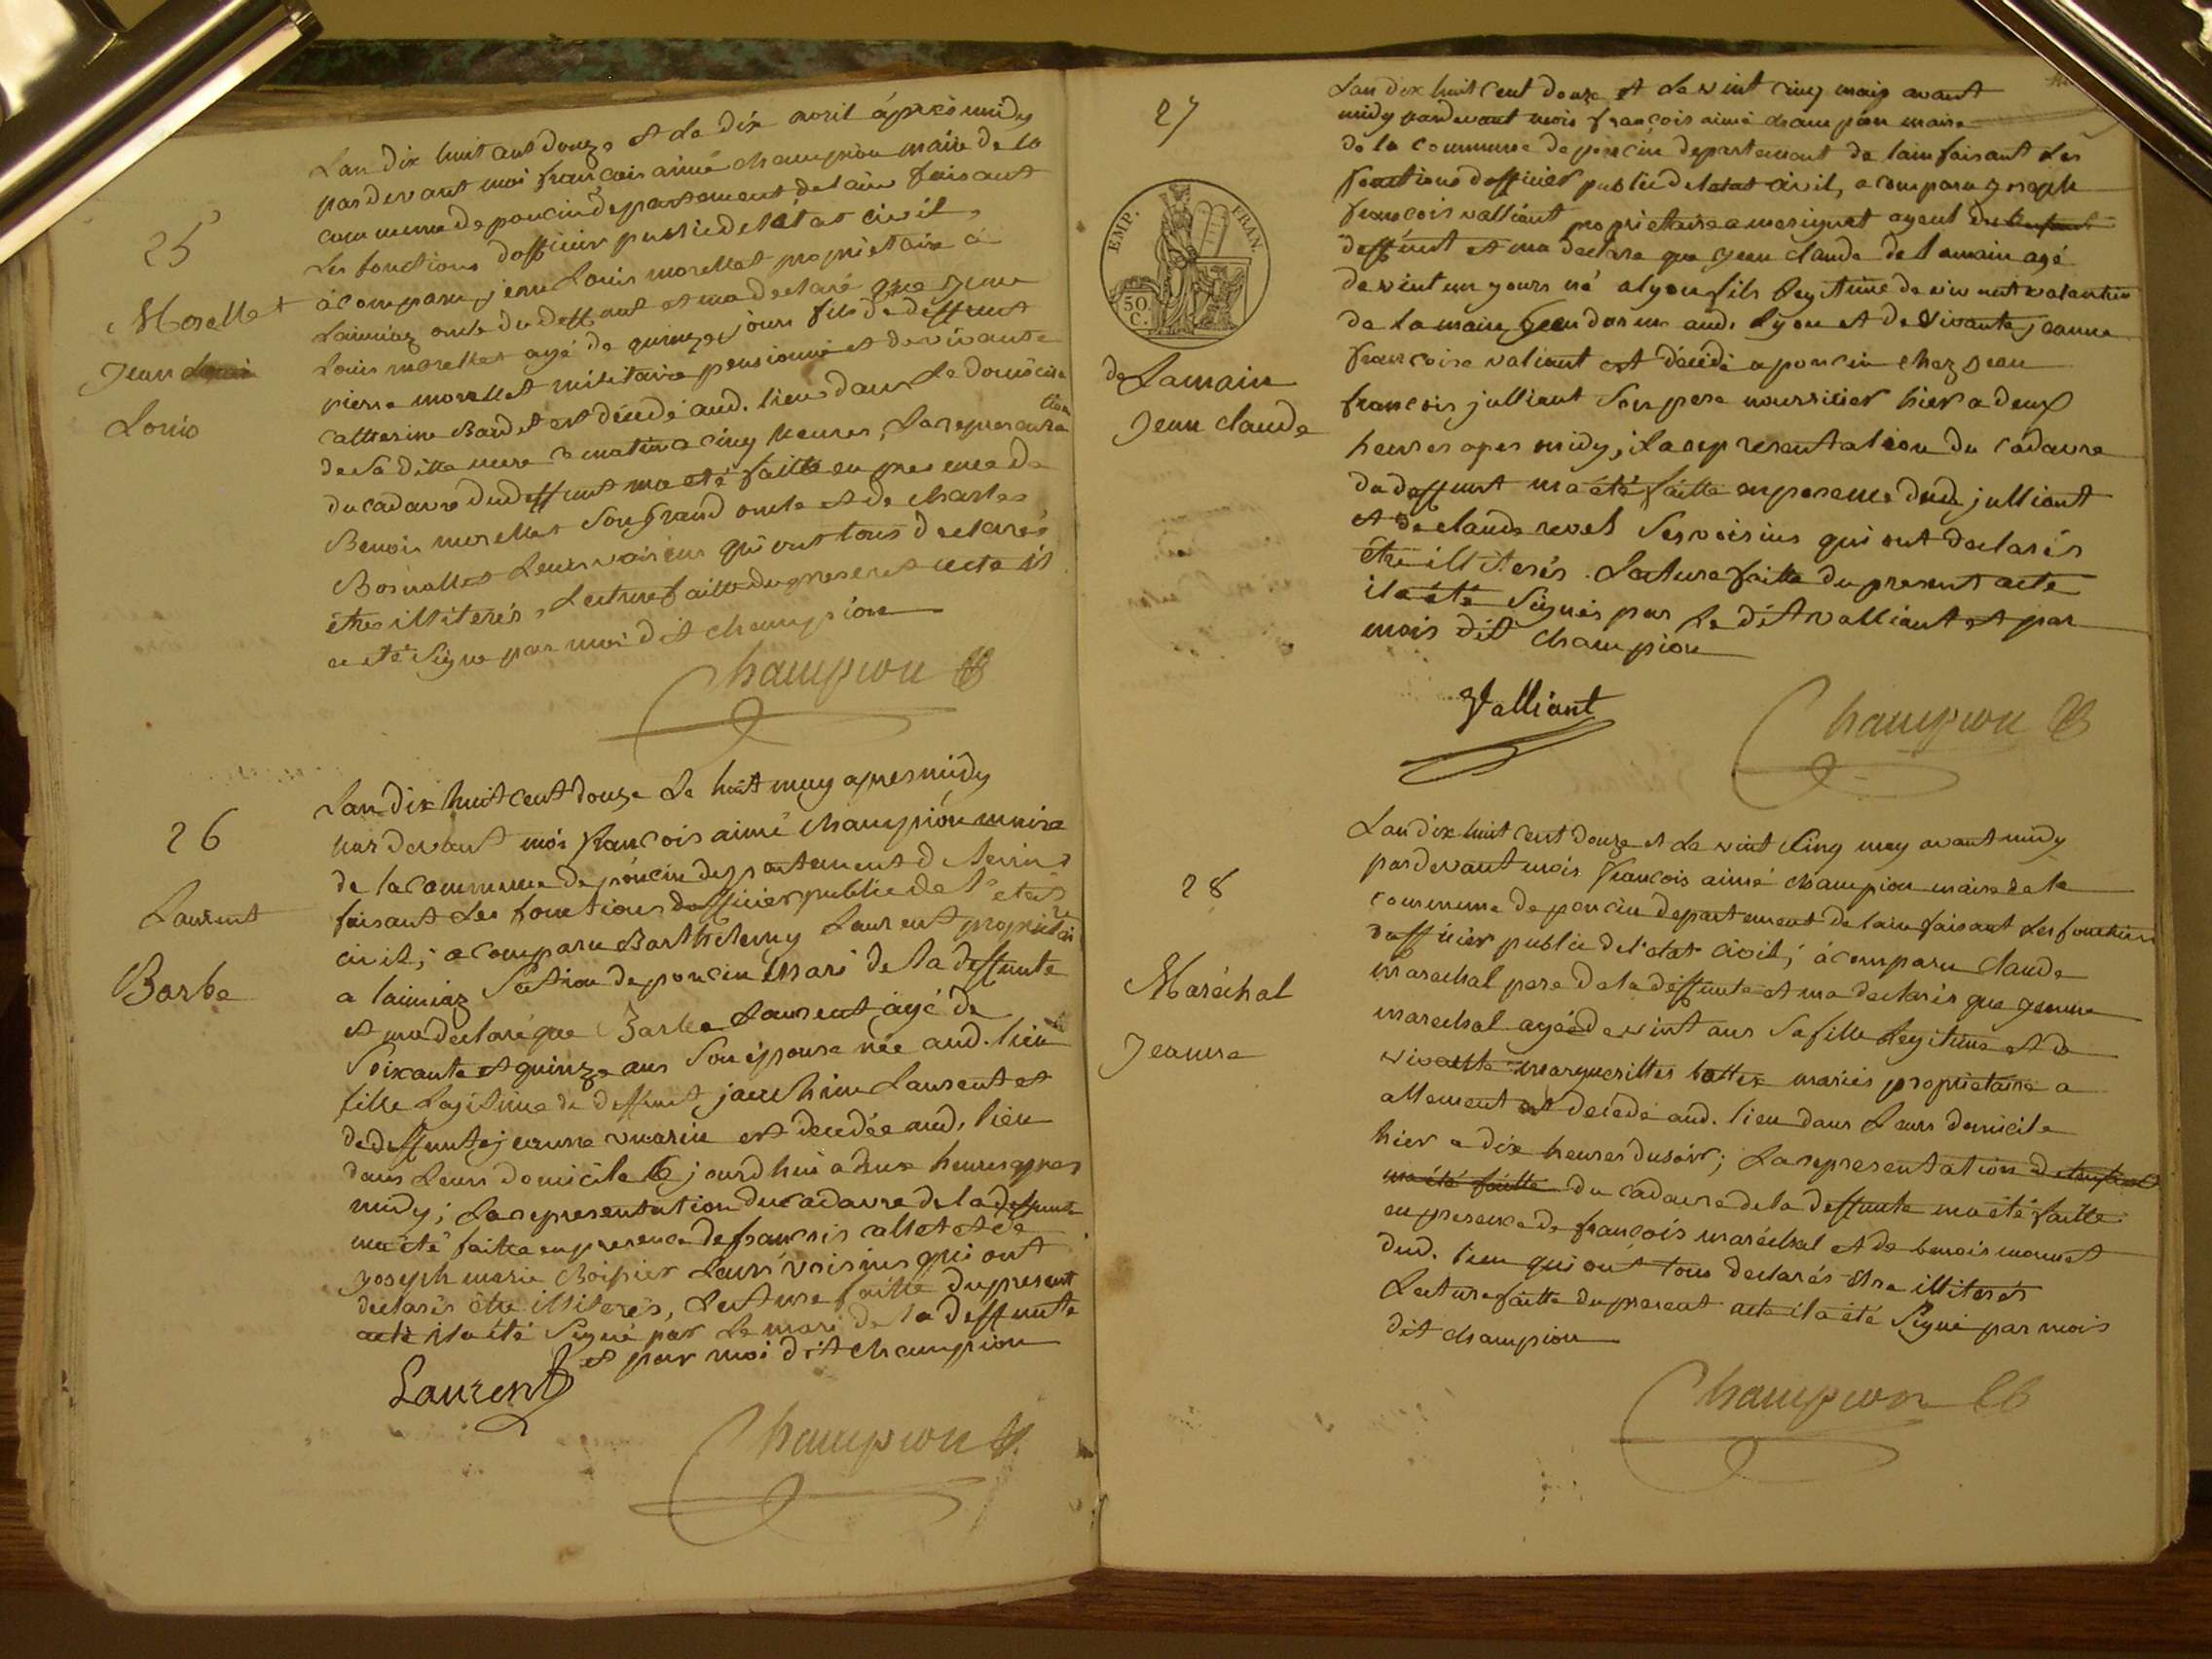 25
Morellet
Jean
Louis
Lan dix huit cent douze et le dix avril áprés midy
pardevant moi françois aimé champion maire de la
commune de poncin departement de lain faisant
les fonctions dofficier public de létat civil,
à comparu jean Louis morellet propriétaire à
Laimiaz oncle du deffunt et ma declaré que jean
Louis morellet agé de quinze jours fils de deffunt
pierre morellet militaire pensionné et de vivante
catherine Baudet est décédé aud. lieu dans le domicile
de sa ditte mere ce matin a cinq heures, la représenta
tion
du cadavre du deffunt ma eté faitte en presence de
Benoit morellet son grand oncle et de charles
leurs voisins qui ont tous declarés
étre illiterés, Lecture faitte du present acte il
a eté signe par moi dit champion
Champion
26
Laurent
Barbe
Lan dix huit cent douze le huit may apres midy
par devant moi françois aimé champion maire
de la commune de poncin departement de lain
faisant les fonctions dofficier public de l'etat
civil; a comparu Barthelemy Laurent propriétai
re
a laimiaz section de poncin mari de la deffunte
et ma declaré que Barbe Laurent agé de
Soixante et quinze ans son épouse née aud. lieu
fille legitime de deffunt joachim Laurent et
de deffunte jeanne vuarin est decedée aud. lieu
dans leurs domicile ce jourd'hui a deux heures apres
midy; la representation du cadavre de la deffunte
ma été faitte en presence de françois allet et de
joseph marie Boissier leurs voisins qui ont
declarés étre illiterés, Lecture faitte du present
acte il a été signé par le mari de la deffunte
et par moi dit champion
Laurent
Champion
27
EMP. FRAN.
50 C.
de Lamain
Jean claude
Lan dix huit cent douze et le vint cinq mais avant
midy pardevant mois françois aimé champion maire
de la commune de poncin departement de lain faisant les
fonctions dofficier public de letat civil, a comparu joseph
françois valliant propriétaire a merignat agent
deffunt et ma declare que jean claude de lamain agé
de vint un jours né a lyon fils legitime de vivant valantin
de lamain gendarme aud. Lyon et de vivante jeanne
francoise valiant est décédé a poncin chez jean
francois julliant son pere nourricier hier a deux
heures apres midy, la representation du cadavre
du deffunt ma été faitte en presence dud. julliant
et de claude revel ses voisins qui ont declarés
étre illiterés. Lecture faitte du present acte
il a été signés par le dit valliant et par
mois dit champion
Valliant
Champion
28
Maréchal
Jeanne
Lan dix huit cent douze et le vint cinq may avant midy
pardevant mois francois aimé champion maire de la
commune de poncin departement de lain faisant les fonctions
dofficier public de l'etat civil; à comparu claude
marechal pere de la deffunte et ma declarés que jeanne
marechal agée de vint ans sa fille legitime et de
vivante marguerittes mariés propriétaire a
allement est decedé aud. lieu dans leurs domicile
hier a dix heures du soir; La representation
ma été faitte du cadavre de la deffunte ma été faitte
en presence de francois maréchal et de benois monnet
dud. lieu qui ont tous declarés étre illiterés
Lecture faitte du present acte il a été signé par mois
dit champion
Champion